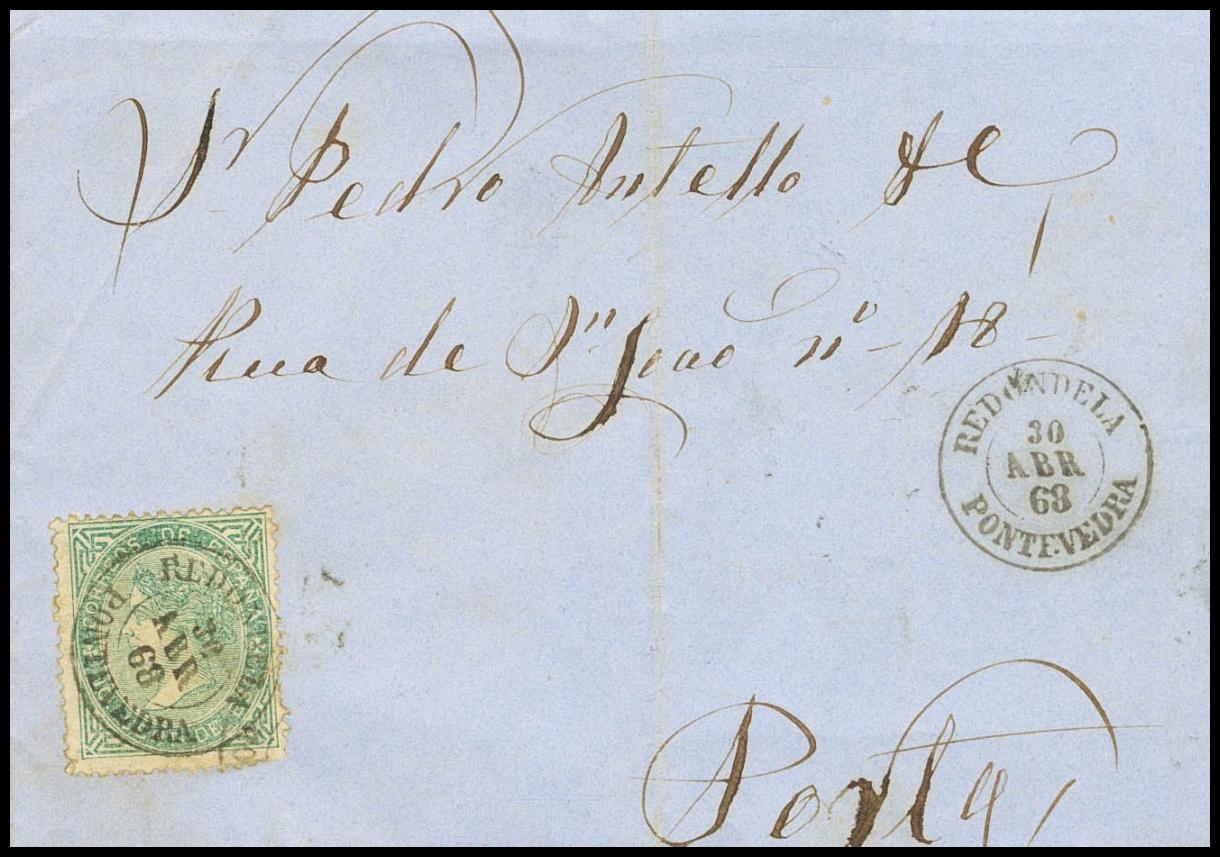 Sr Pedro Antello & C
Rua de Sn João nº - 18 -
REDONDELA
30
ABR
68
PONTEVEDRA
CORREOS DE ESPAÑA
REDONDELA
30
ABR
68
PONTEVEDRA
Porto